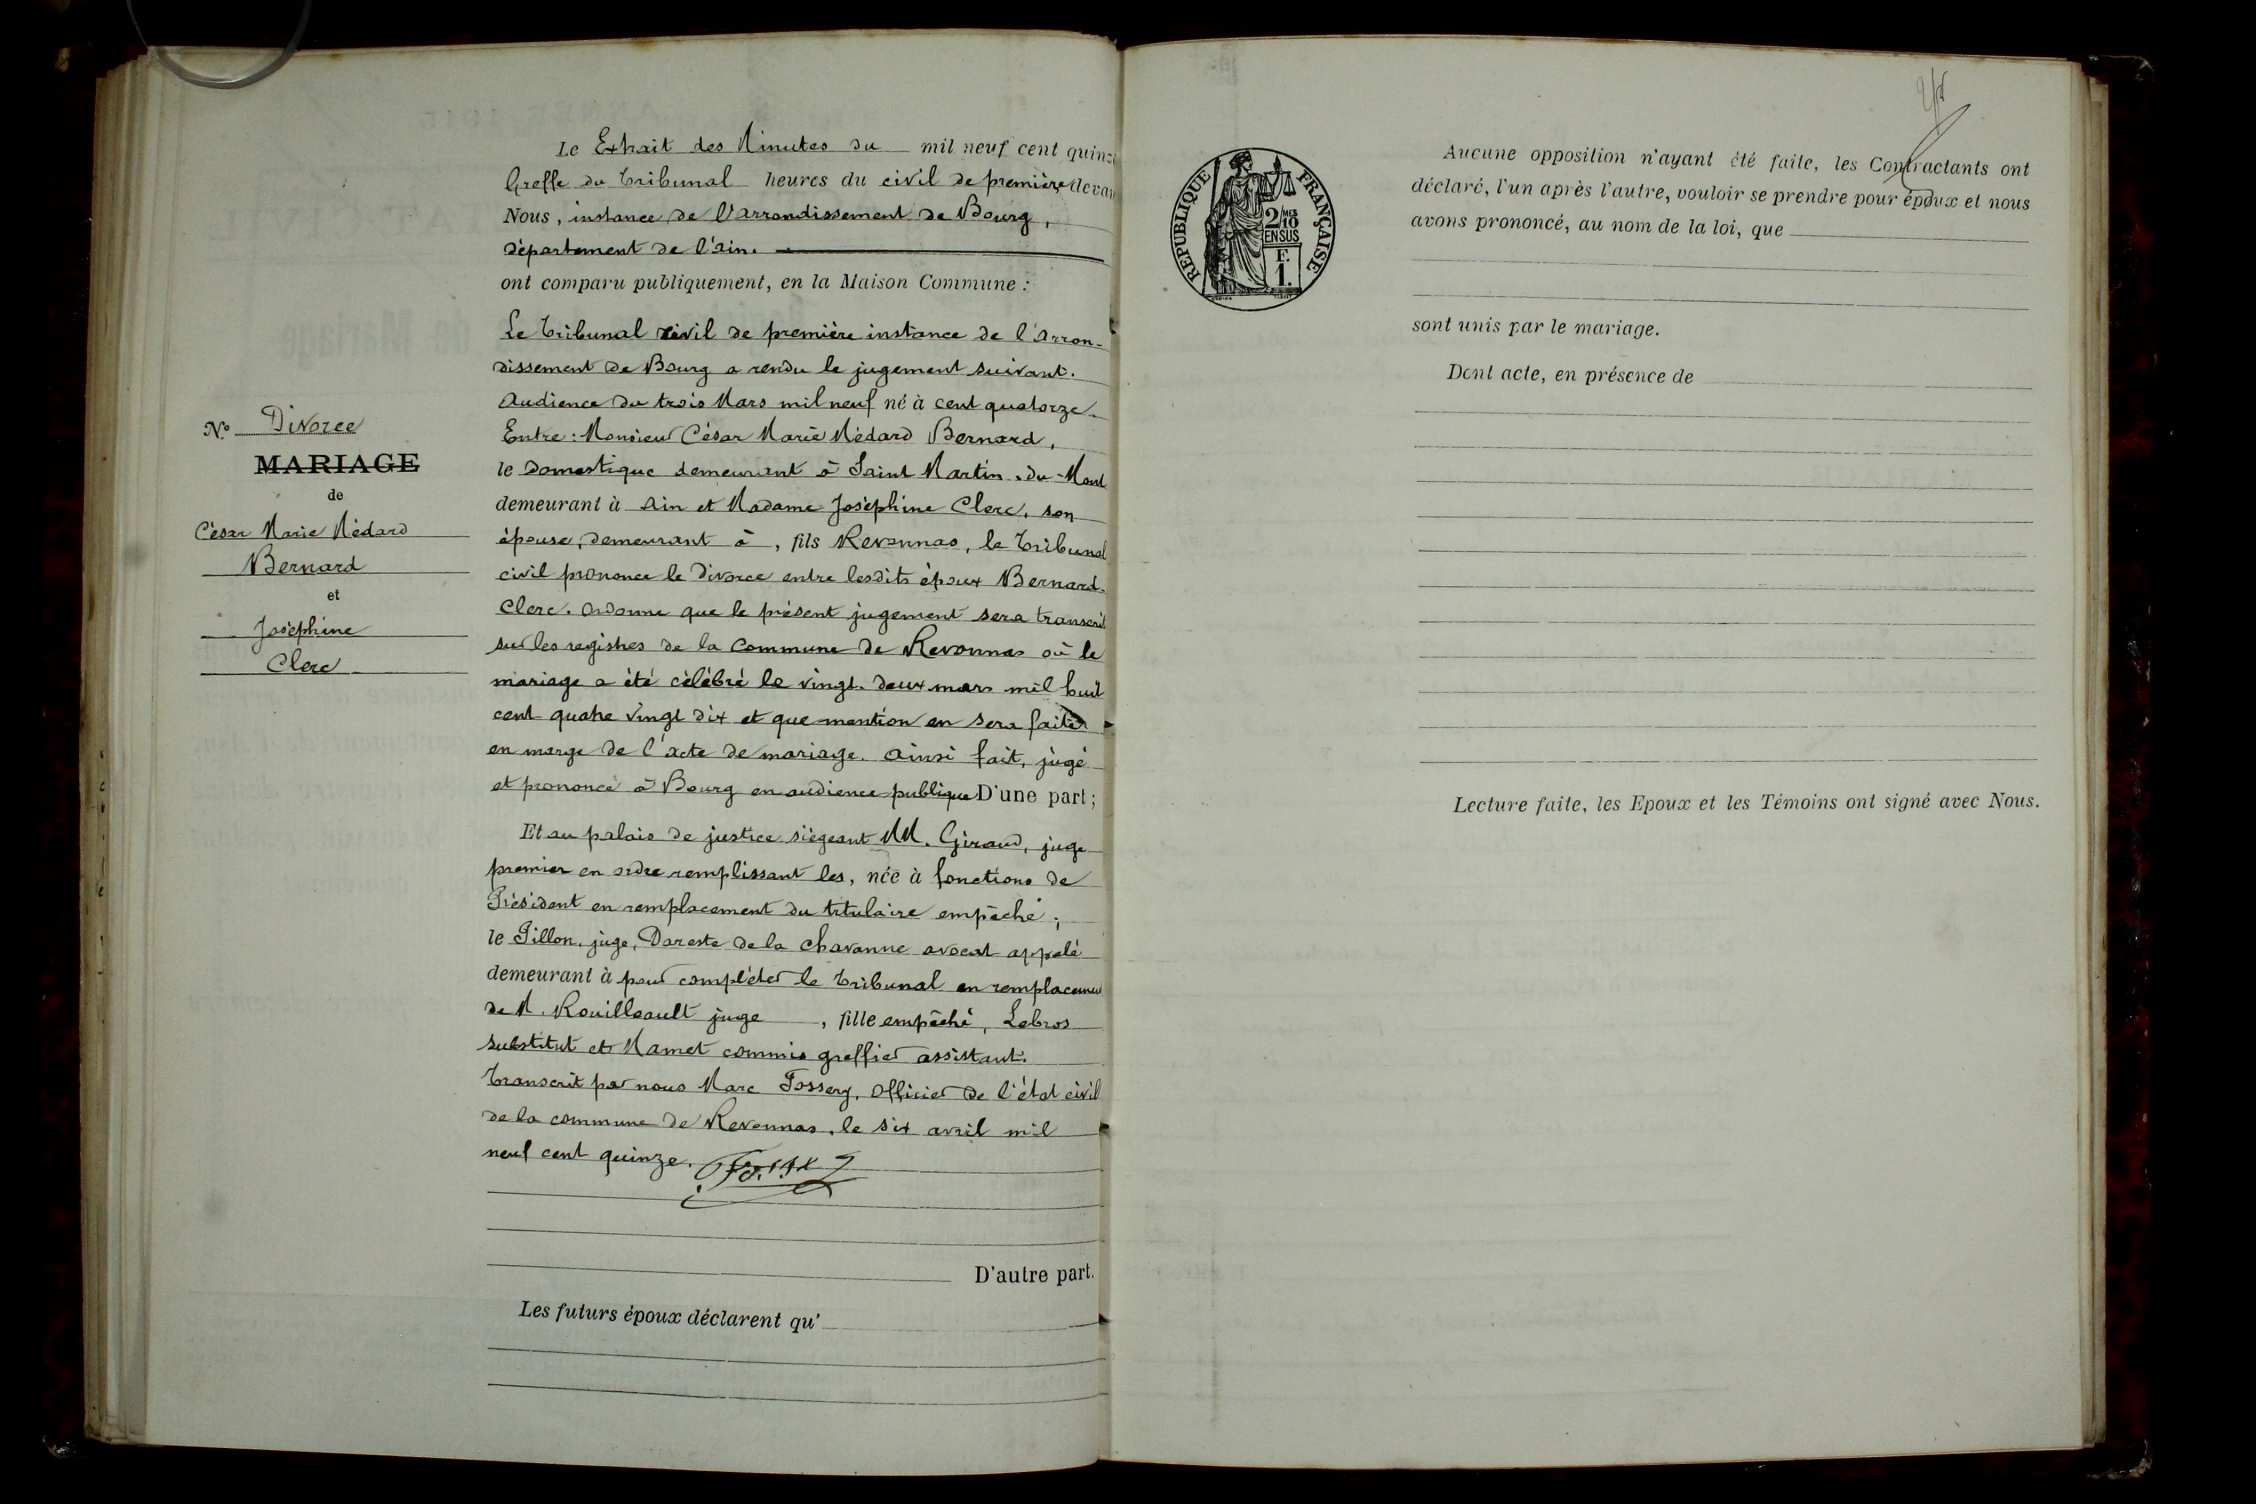 Le Extrait des Minutes du mil neuf cent quinz
Greffe du Tribunal heures du civil de première devan
Nous, instance de l'arrondissement de Bourg,
département de l'Ain.
ont comparu publiquement, en la Maison Commune :
Le Tribunal civil de première instance de l'Arron-
dissement de Bourg a rendu le jugement suivant.
Audience du trois Mars mil neuf né à cent quatorze.
Entre : Monsieur César Marie Médard Bernard,
le Domestique demeurant à Saint Martin-du-Mont
demeurant à Ain et Madame Joséphine Clerc, son
épouse, demeurant à , fils Revonnas, le Tribunal
civil prononce le Divorce entre lesdits époux Bernard-
Clerc. Ordonne que le présent jugement sera transcrit
sur les registres de la Commune de Revonnas où le
mariage a été célébré le vingt-deux mars mil huit
cent quatre vingt dix et que mention en sera faite
en marge de l'acte de mariage. Ainsi fait, jugé
et prononcé à Bourg en audience publique D'une part ;
Et au palais de justice siégeant MM. Giraud, juge
premier en ordre remplissant les, née à fonctions de
Président en remplacement du titulaire empêché ;
le Pillon, juge, Dareste de la Chavanne avocat appelé
demeurant à pour compléter le Tribunal en remplacement
de M. Rouilleault juge , fille empêché, Lebros
substitut et Mamet commis greffier assistant.
Transcrit par nous Marc Fossery, Officier de l'état civil
de la commune de Revonnas, le six avril mil
neuf cent quinze.
D'autre part.
Les futurs époux déclarent qu'
N° Divorce
MARIAGE
de
César Marie Médard
Bernard
et
Joséphine
Clerc
RÉPUBLIQUE FRANÇAISE
2/10 MES
EN SUS
F.
1.
Aucune opposition n'ayant été faite, les Contractants ont
déclaré, l'un après l'autre, vouloir se prendre pour époux et nous
avons prononcé, au nom de la loi, que
sont unis par le mariage.
Dont acte, en présence de
Lecture faite, les Epoux et les Témoins ont signé avec Nous.